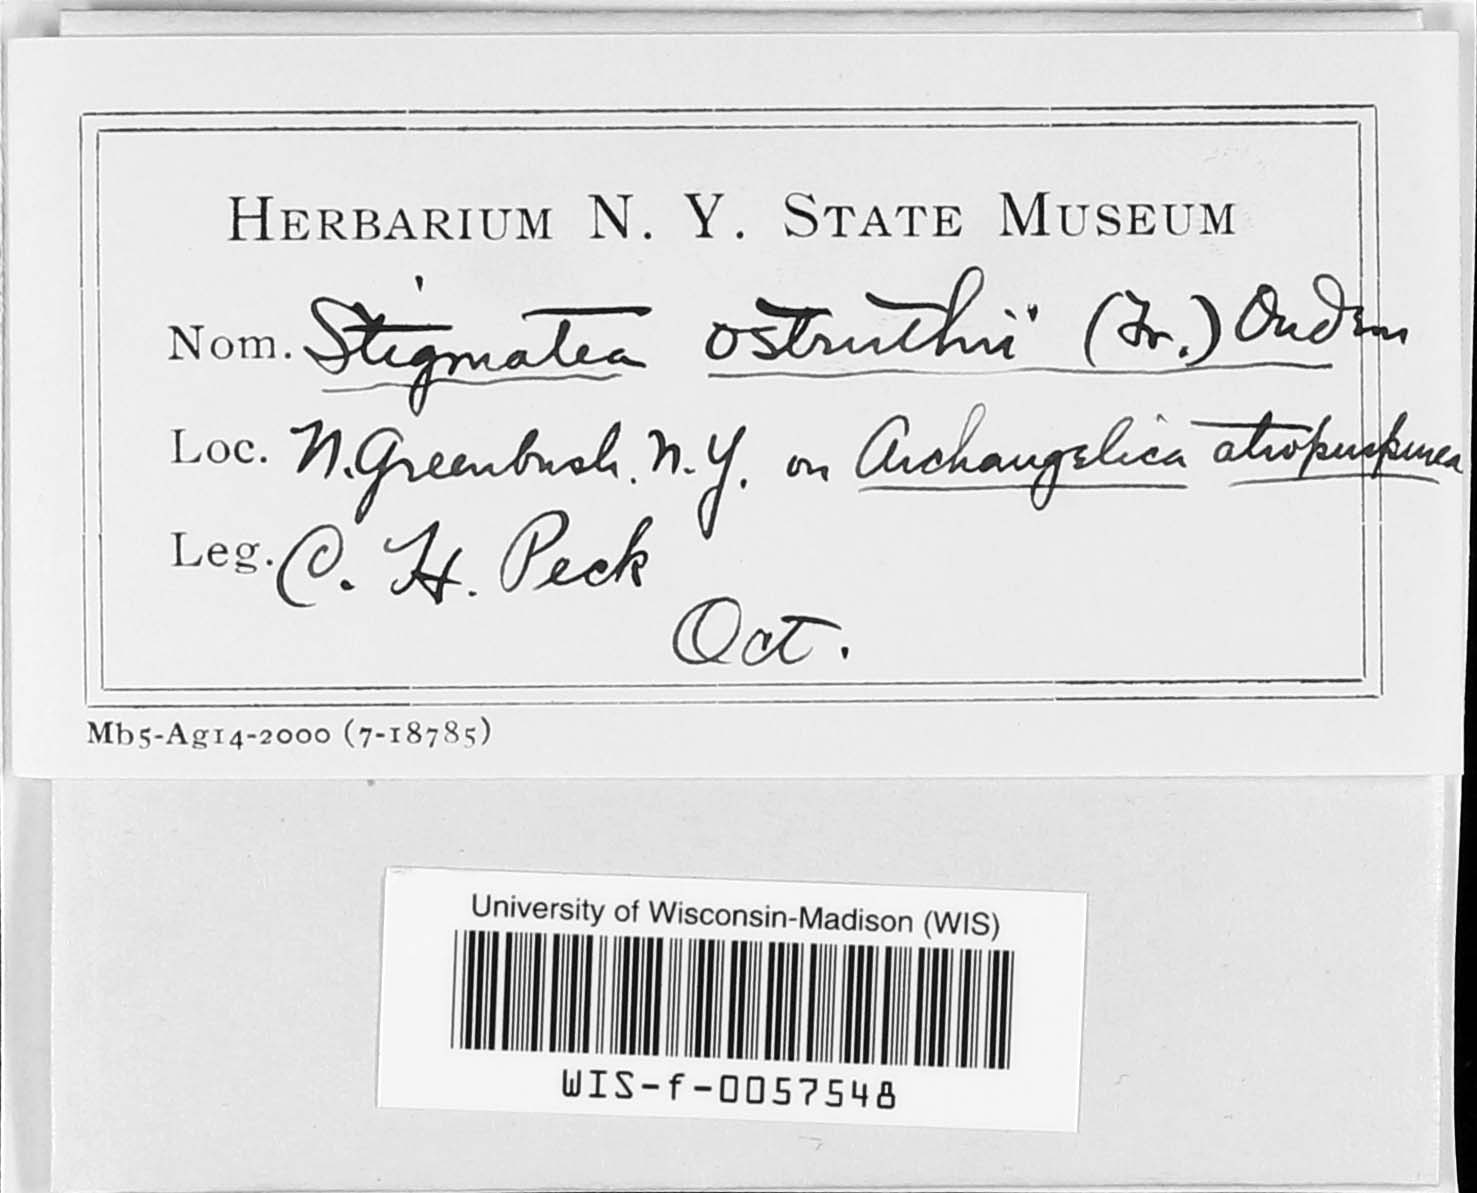 HERBARIUM N. Y. STATE MUSEUM
Nom. Stigmatea ostruthii (Fr.) Oudem
Loc. N. Greenbush. N. Y. on Archangelica atropurpurea
Leg. C. H. Peck
Oct.
Mb5-Ag14-2000 (7-18785)
University of Wisconsin-Madison (WIS)
WIS-f-0057548